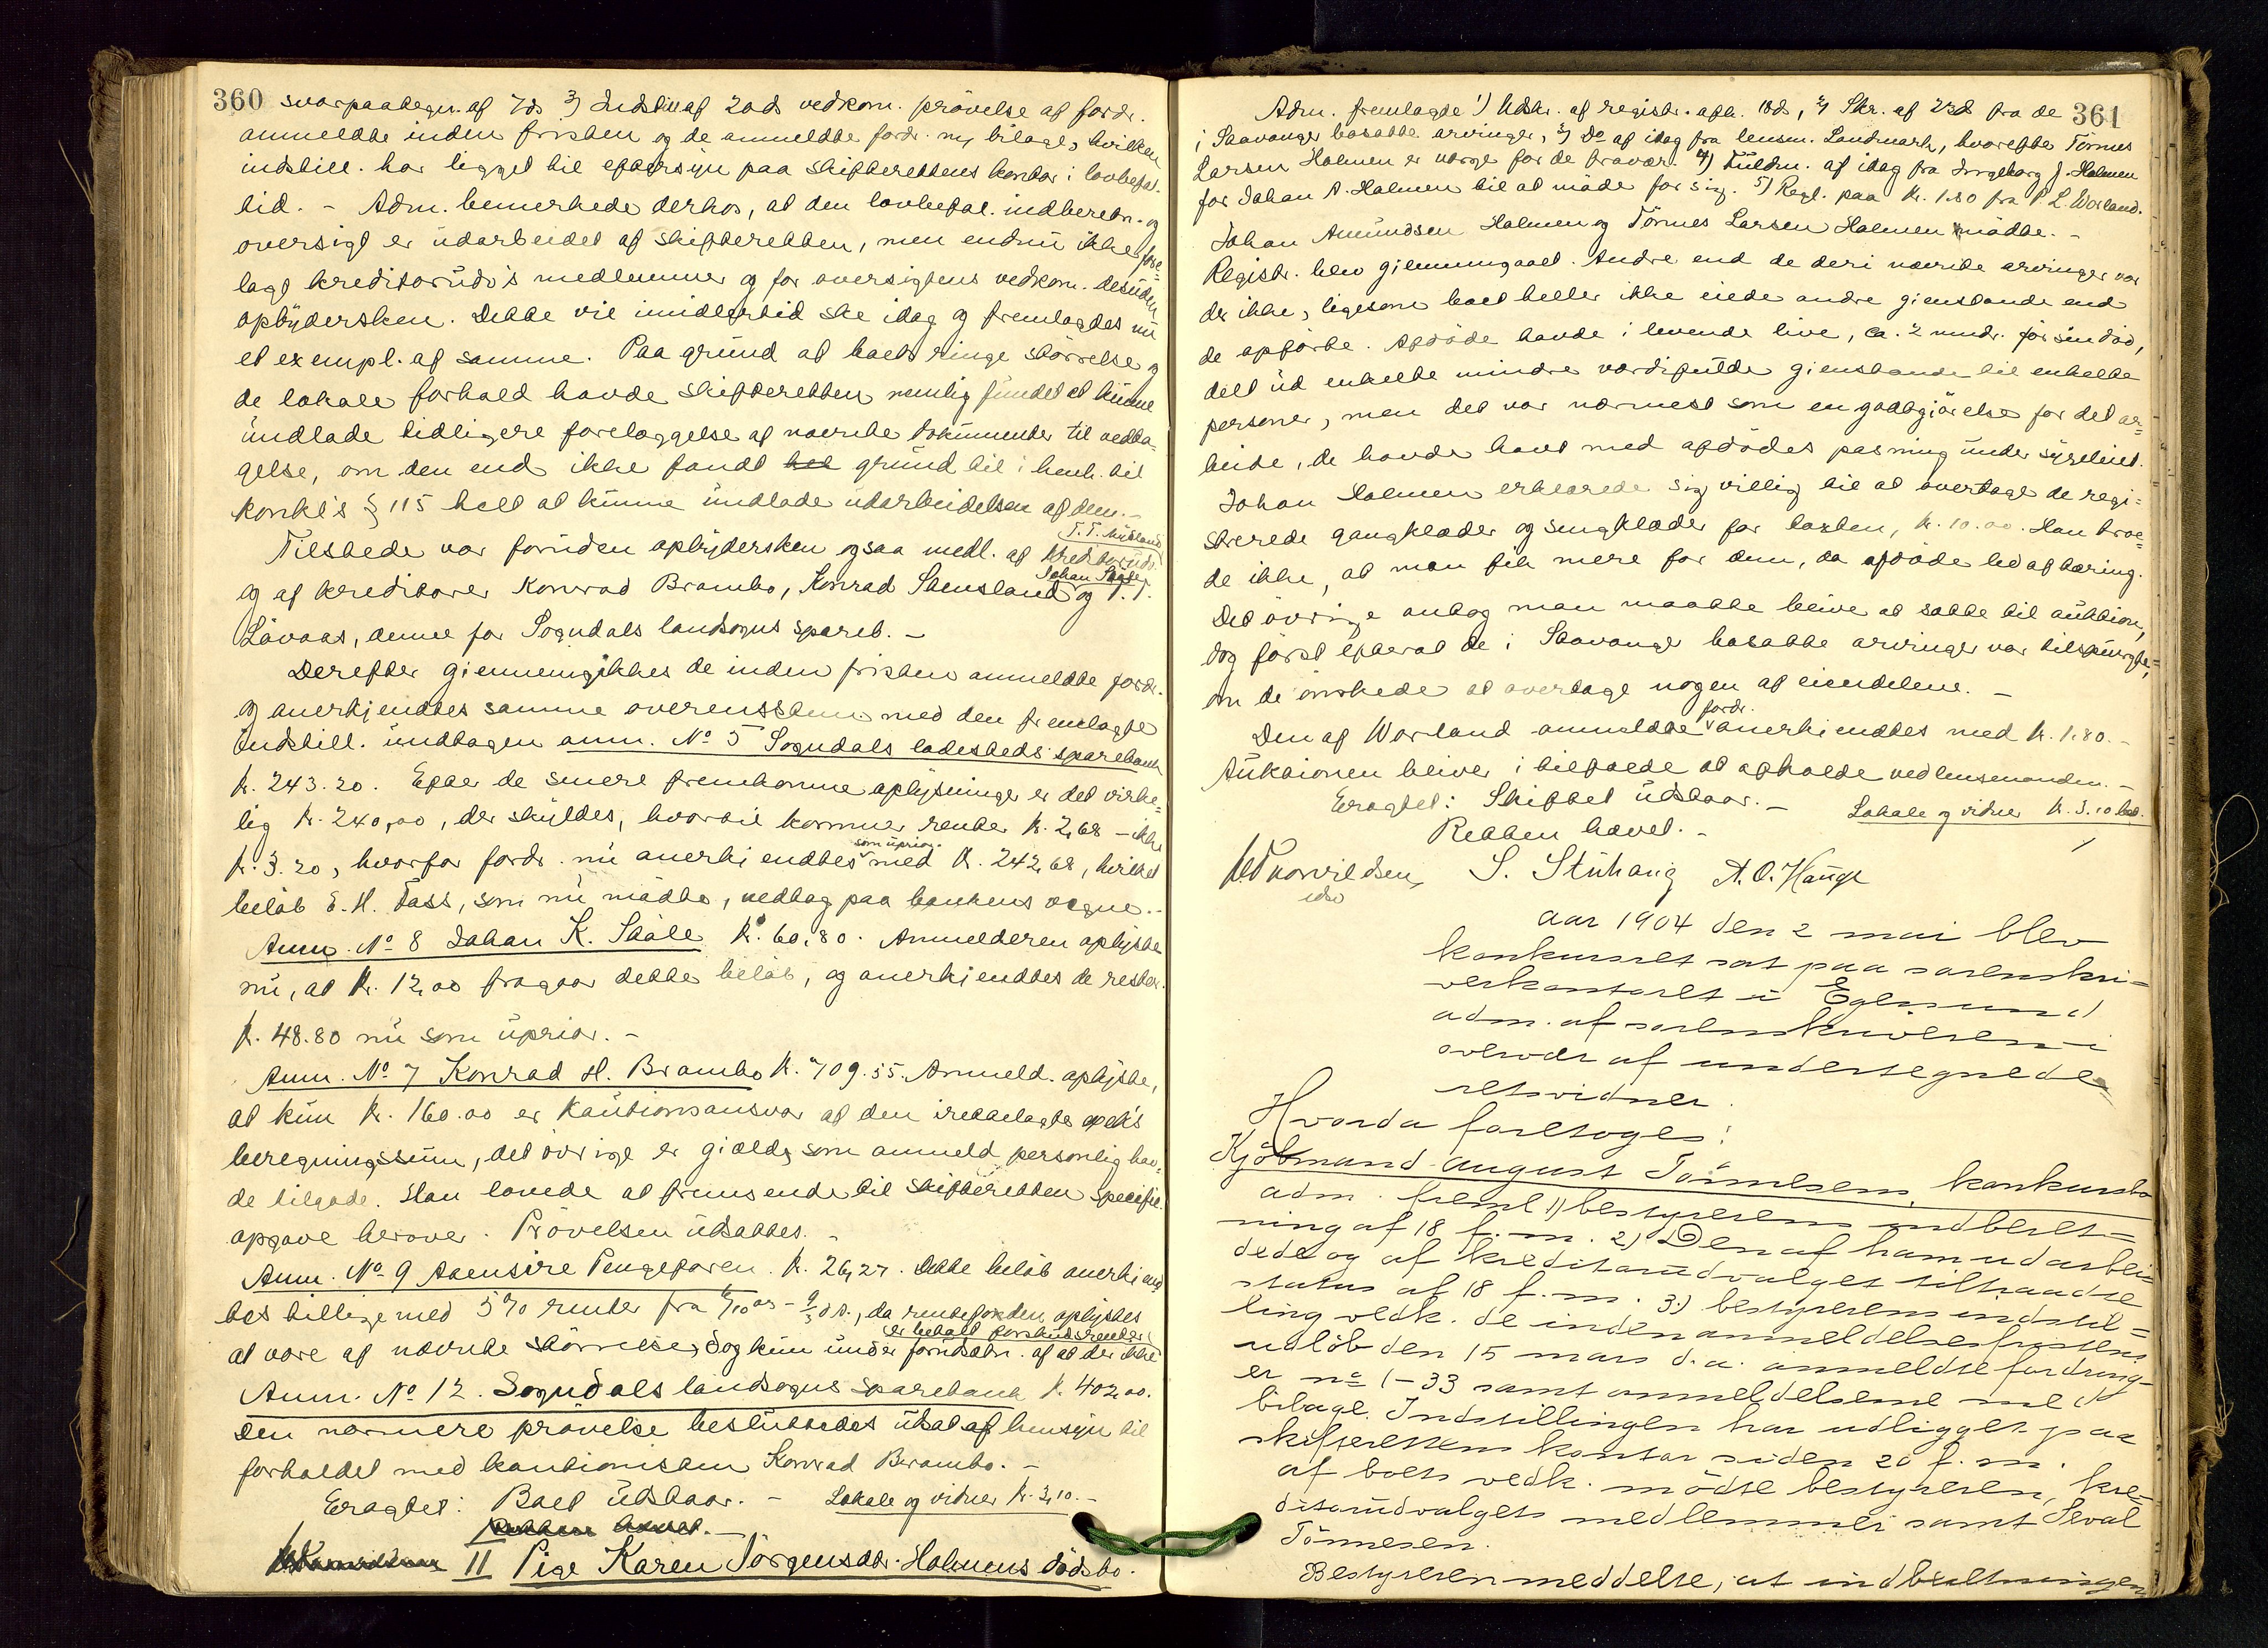 360
svarpaategn. af 7ds 3) Indstill. af 20ds vedkom. prövelse af fordr.
anmeldte inden fristen og de anmeldte fordr. m, bilage, hvilken
indstill. har ligget til eftersyn paa skifterettens kontor i lovbefal.
tid. - Adm. bemerkede derhos, at den lovbefal. indberetn. og
oversigt er udarbeidet af skifteretten, men endnu ikke fore=
lagt kreditorudv's medlemmer og for oversigtens vedkom. desuden
opbydersken. Dette vil imidlertid ske idag og fremlagdes nu
et exempl. af samme. Paa grund af boets ringe störrelse og
de lokale forhold havde skifteretten nemlig fundet at kunne
undlade tidligere foreläggelse af nævnte dokumenter til vedta-
gelse, om den end ikke fandt grund til i henh. til
konkl's § 115 helt at kunne undlade udarbeidelsen af dem. -
Tilstede var foruden opbydersken ogsaa medl. af kreditorudv.
T. T. Mydland
Johan Skaale
og af kreditorer Konrad Brambo, Konrad Stensland og T. T.
Lövaas, denne for Sogndals landsogns spareb. -
Derefter giennemgikkes de inden fristen anmeldte fordr.
og anerkjendtes samme overensstem. med den fremlagte
indstill. undtagen anm. No 5 Sogndals ladesteds sparebank
k. 243.20. Efter de senere fremkomne oplysninger er det virke-
lig k. 240,00, der skyldes, hvortil kommer renter k. 2,68 - ikke
k. 3.20, hvorfor fordr. nu anerkiendtes som uprior. med k. 242,68, hvilket
belöb E. H. Tass, som nu mödte, vedtog paa bankens vegne. -
Anm. No 8 Johan K. Skåle k. 60,80. Anmelderen oplyste
nu, at k. 12,00 fragaar dette belöb, og anerkjendtes de rester.
k. 48.80 nu som uprior. -
Anm. No 7 Konrad H. Brambo k. 709.55. Anmeld. oplyste,
at kun k. 160.00 er kautionsansvar af den irettelagte
beregningssum, det övrige er giæld, som anmeld personlig hav-
de tilgode. Han lovede at fremsende til skifteretten specific.
opgave herover. Prövelsen udsattes. -
Anm. No 9 Aaensire Pengeforen. k. 26,27. Dette belöb anerkiend
tes tillige med 5 % renter fra da rentefoden oplystes
er betalt forskudsrenter
at være af nævnte störrelse, dog kun under forudsætn. af at der ikke
Anm. No 12. Sogndals landsogns sparebank k. 402,00.
Den nærmere prövelse besluttedes udsat af hensyn til
forholdet med kautionisten Konrad Brambo. -
Eragtet: Boet udstaar. - Lokale og vidner k. 3,10. -
Retten hævet. -
II Pige Karen Jörgensdtr. Holmens dödsbo.
361
Adm. fremlagde 1) Udskr. af registr. afh. 18ds, 2) Skr. af 23ds fra de
i Stavanger bosatte arvinger, 3) Do af idag fra lensm. Landmark, hvorefter Tönnes
Larsen Holmen er værge for de fravær. 4) Fuldm. af idag fra Ingeborg J. Holmen
for Johan A. Holmen til at möde for sig. 5) Regl. paa k. 1.80 fra P. L. Worland.
Johan Amundsen Holmen og Tönnes Larsen Holmen mödte. -
Registr. blev giennemgaaet. Andre end de deri nævnte arvinger var
der ikke, ligesom boet heller ikke eiede andre gienstande end
de opförte. Afdöde havde i levende live, ca. 2 mndr. för sin död,
delt ud enkelte mindre værdifulde gienstande til enkelte
personer, men det var nærmest som en godtgjörelse for det ar=
beide, de havde havt med afdödes pasning under sygeleiet.
Johan Holmen erklærede sig villig til at overtage de regi=
strerede gangklæder og sengklæder for taxten, k. 10.00. Han troe=
de ikke, at man fik mere for dem, da afdöde led af tæring.
Det övrige antog man maatte blive at sætte til auktion,
dog först efterat de i Stavanger bosatte arvinger var tilspurgte,
om de önskede at overtage nogen af eiendelene. -
Den af Worland anmeldte fordr. anerkiendtes med k. 1.80. -
Auktionen bliver i tilfælde at afholde ved lensmanden. -
Eragtet: Skiftet udstaar. - Lokale og vidner k. 3.10 bet.
Retten hævet. -
S. Stuhaug A. O. Hauge
Aar 1904 den 2 mai blev
konkursret sat paa sorenskri=
verkontoret i Egersund
adm. af sorenskriveren i
overvær af undertegnede
retsvidner.
Hvorda foretoges:
Kjöbmand August Tönnesens konkursbo
adm. freml 1) bestyrerens indberet=
ning af 18 f. m. 2) Den af ham udarbei-
dede og af kreditorudvalget tiltraadte
status af 18 f. m. 3) bestyrerens indstil=
ling vedk. de inden anmeldelsesfristens
udlöb den 15 mars d. a. anmeldte fordring-
er no 1-33 samt anmeldelserne med
bilage. Indstillingen har udligget paa
skifterettens kontor siden 20 f. m.
af boets vedk. mödte bestyreren, kre-
ditorudvalgets medlemmer samt Sevald
Tönnesen.
Bestyreren meddelte, at indberetningen